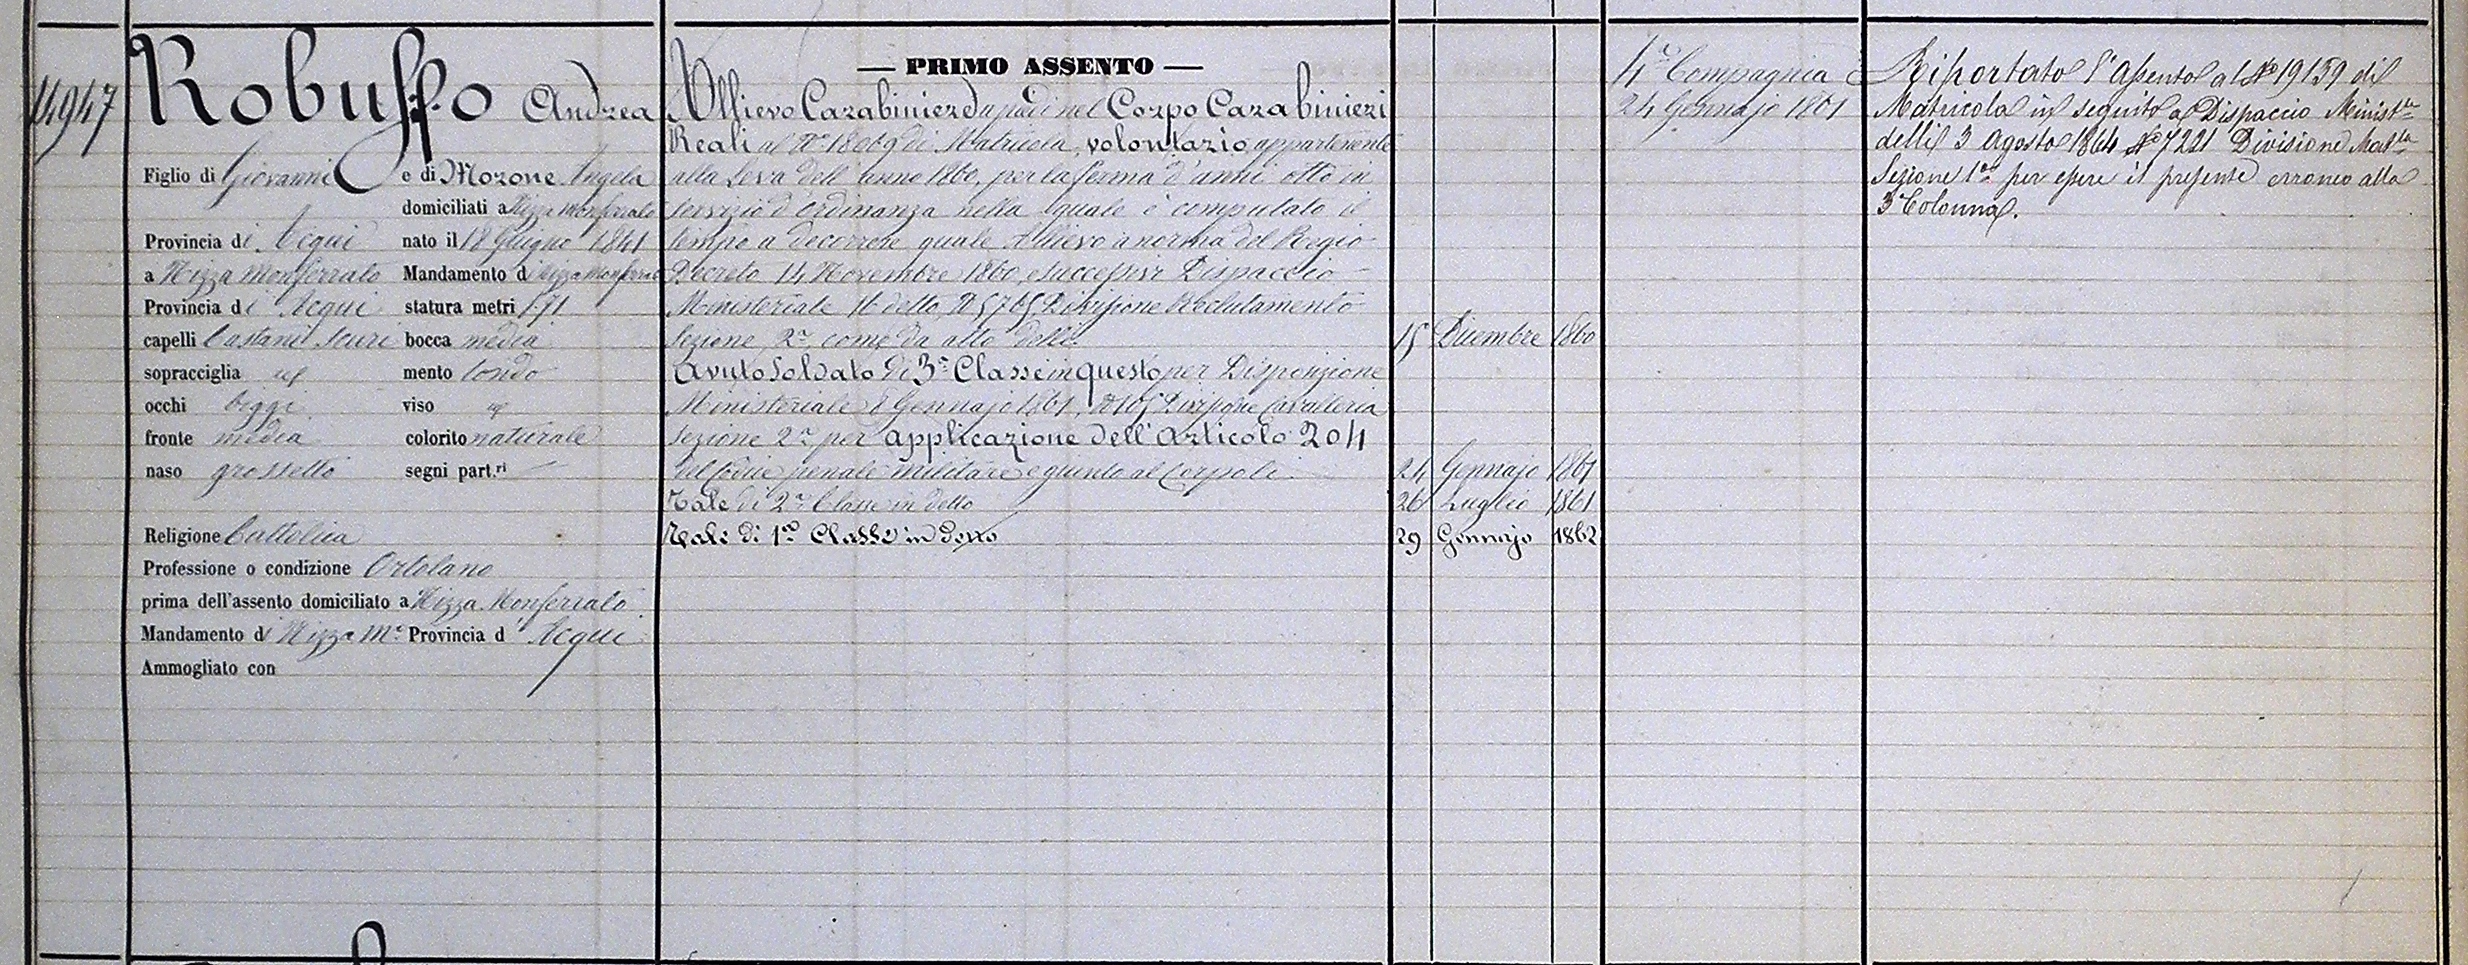 14947
Robusso Andrea
Figlio di Giovanni e di Morone Angela
domiciliati a Nizza Monferrato
Provincia di Acqui nato il 18 Giugno 1841
a Nizza Monferrato Mandamento di Nizza Monferrato
Provincia di Acqui statura metri 1.71
capelli Castani scuri bocca media
sopracciglia id mento tondo
occhi biggi viso id
fronte media colorito naturale
naso grossetto segni part.ri
Religione Cattolica
Professione o condizione Ortolano
prima dell'assento domiciliato a Nizza Monferrato
Mandamento di Nizza Mto Provincia d' Acqui
Ammogliato con
— PRIMO ASSENTO —
Allievo Carabiniere a piedi nel Corpo Carabinieri
Reali al No 18069 di Matricola, volontario appartenente
alla Leva dell'anno 1860, per la ferma d'anni otto in
servizio d'ordinanza nella quale è computato il
tempo a decorrere quale Allievo a norma del Regio
Decreto 14 Novembre 1860, e successivi Dispaccio
Ministeriale 16 detto No 5765 Divisione Reclutamento
Sezione 2a come da atto delli 15 Dicembre 1860
Avuto Soldato di 3a Classe in questo per Disposizione
Ministeriale 8 Gennajo 1861, No 105 Divisione Cavalleria
Sezione 2a per applicazione dell'Articolo 204
del Codice penale militare e giunto al Corpo li 24 Gennajo 1861
Tale di 2a Classe in detto 26 Luglio 1861
Tale di 1a Classe in detto 29 Gennajo 1862
4a Compagnia
24 Gennajo 1861
Riportato l'assento al No 19159 di
Matricola in seguito a Dispaccio Ministle
delli 3 Agosto 1864 No 7221 Divisione Matla
Sezione 1a per essere il presente erroneo alla
3a Colonna.